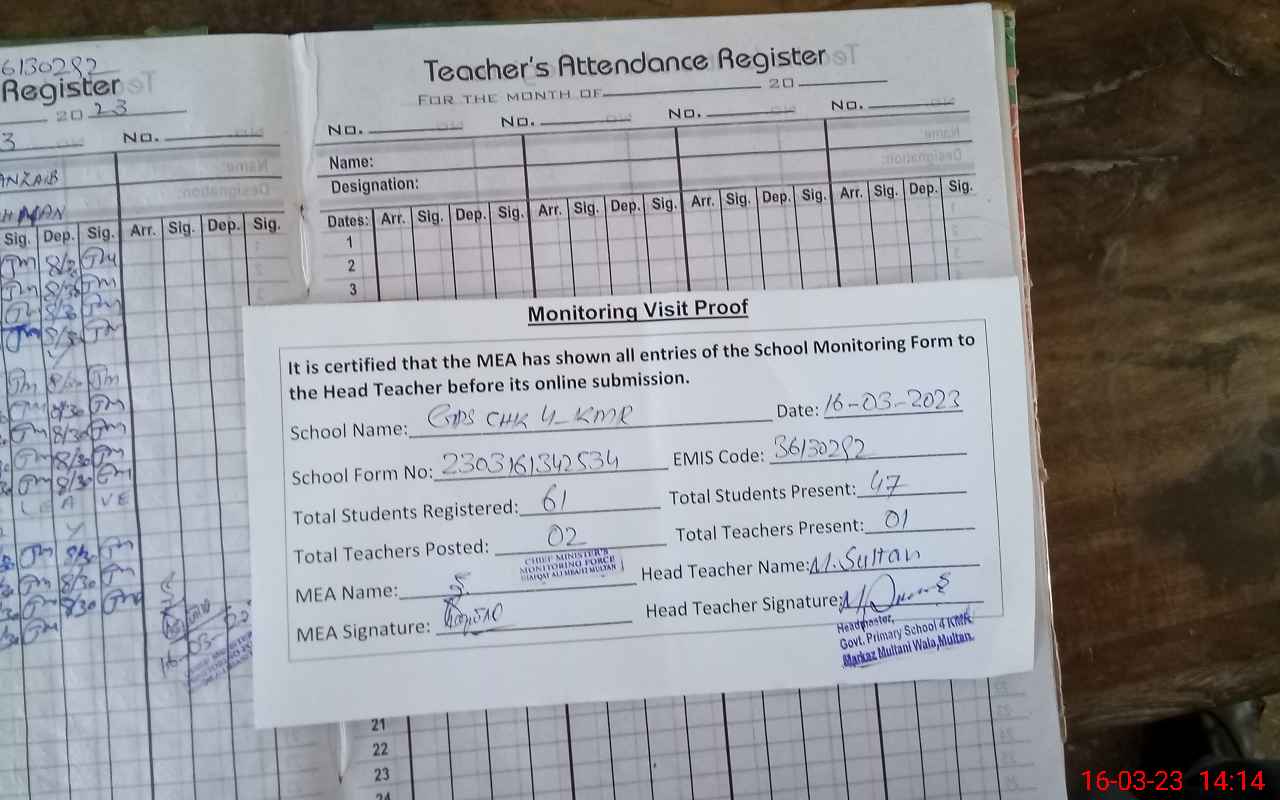 6130292
Register
20 23
3 No.
ANZAIB
Sig. Dep. Sig. Arr. Sig. Dep. Sig.
8/30
8/30
8/30
8/30
8/30
8/30
8/30
8/30
8/30
LEAVE
8/30
8/30
8/30
16-03-
Teacher's Attendance Register
FOR THE MONTH OF 20
No. No. No. No.
Name:
Designation:
Dates: Arr. Sig. Dep. Sig. Arr. Sig. Dep. Sig. Arr. Sig. Dep. Sig. Arr. Sig. Dep. Sig.
1
2
3
Monitoring Visit Proof
It is certified that the MEA has shown all entries of the School Monitoring Form to
the Head Teacher before its online submission.
School Name: GPS CHK 4_KMR Date: 16-03-2023
School Form No: 2303161342534 EMIS Code: 36130292
Total Students Registered: 61 Total Students Present: 47
Total Teachers Posted: 02 Total Teachers Present: 01
CHIEF MINISTER'S
MONITORING FORCE
MEA Name: Head Teacher Name: M. Sultan
MEA Signature: Head Teacher Signature:
Headmaster,
Govt. Primary School 4 KMR
Markaz Multani Wala, Multan.
21
22
23
24
16-03-23 14:14